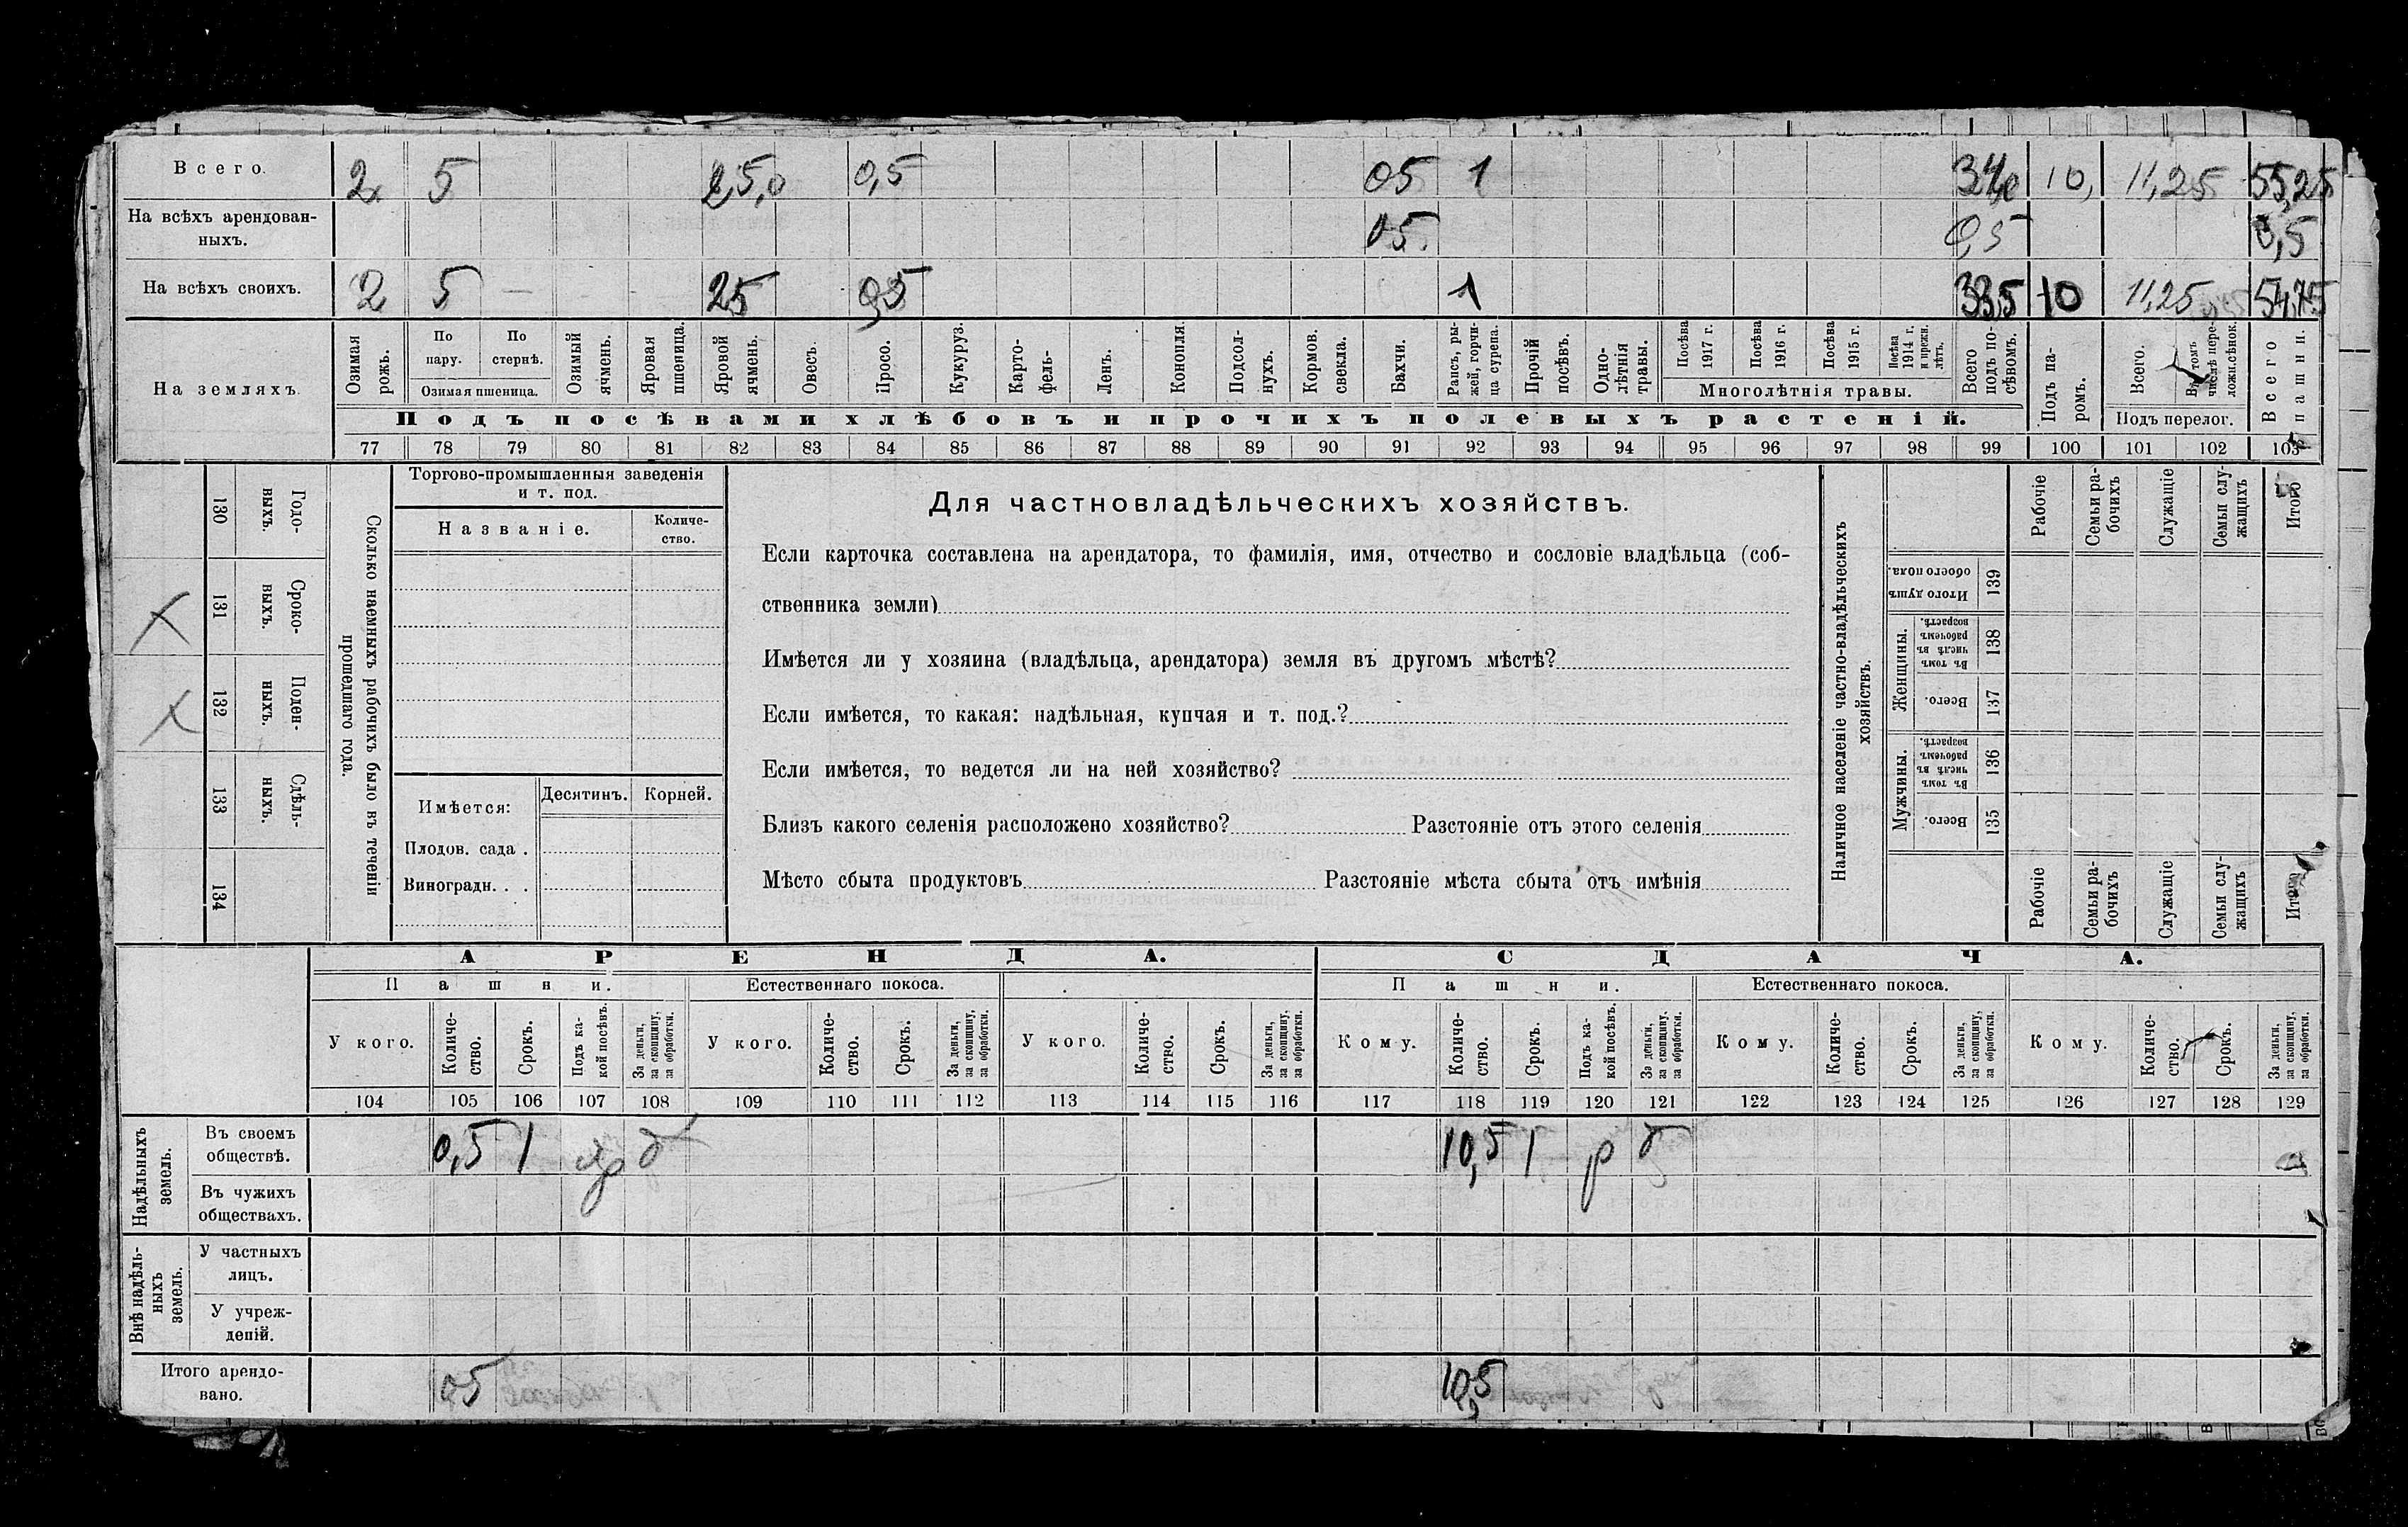 Всего. 2 5 25,0 0,5 05 1 34,0 10, 11,25 55,25
На всѣхъ арендован-
ныхъ. 05. 0,5 0,5
На всѣхъ своихъ. 2 5 — 25 0,5 1 33,5 10 11,25 54,75
На земляхъ.
Озимая рожь.
По пару.
По стернѣ.
Озимая пшеница.
Озимый ячмень.
Яровая пшеница.
Яровой ячмень.
Овесъ.
Просо.
Кукуруз.
Карто-
фель-
Ленъ.
Конопля.
Подсол-
нухъ.
Кормов. свекла.
Бахчи.
Рапсъ, ры-
жей, горчи-
ца сурепа.
Прочій посѣвъ.
Одно-
лѣтнія травы.
Посѣва 1917 г.
Посѣва 1916 г.
Посѣва 1915 г.
Посѣва 1914 г. и прежн. лѣтъ.
Многолѣтнія травы.
Всего подъ по-
сѣвомъ.
Подъ па-
ромъ.
Всего.
Въ томъ числѣ пере-
ложн.сѣнок.
Подъ перелог.
Всего пашни.
Подъ посѣвами хлѣбовъ и прочихъ полевыхъ растеній.
77 78 79 80 81 82 83 84 85 86 87 88 89 90 91 92 93 94 95 96 97 98 99 100 101 102 103
130 Годо-
выхъ.
131 Сроко-
выхъ.
132 Поден-
ныхъ.
133 Сдѣль-
ныхъ.
134
Сколько наемныхъ рабочихъ было въ теченіи
прошедшаго года.
Торгово-промышленныя заведенія
и т. под.
Названіе.
Количе-
ство.
Имѣется: Десятинъ. Корней.
Плодов. сада .
Виноградн. . .
Для частновладѣльческихъ хозяйствъ.
Если карточка составлена на арендатора, то фамилія, имя, отчество и сословіе владѣльца (соб-
ственника земли)
Имѣется ли у хозяина (владѣльца, арендатора) земля въ другомъ мѣстѣ?
Если имѣется, то какая: надѣльная, купчая и т. под.?
Если имѣется, то ведется ли на ней хозяйство?
Близъ какого селенія расположено хозяйство? Разстояніе отъ этого селенія
Мѣсто сбыта продуктовъ Разстояніе мѣста сбыта отъ имѣнія
Наличное населеніе частно-владѣльческихъ
хозяйствъ.
Рабочіе
Семьи ра-
бочихъ
Служащіе
Семьи слу-
жащихъ
Итого
Итого душъ
обоего пола. 139
Женщины.
Въ томъ числѣ въ рабочемъ возрастѣ. 138
Всего. 137
Мужчины.
Въ томъ числѣ въ рабочемъ возрастѣ. 136
Всего. 135
Рабочіе
Семьи ра-
бочихъ
Служащіе
Семьи слу-
жащихъ
АРЕНДА. СДАЧА.
Пашни. Естественнаго покоса. Пашни. Естественнаго покоса.
У кого.
Количе-
ство.
Срокъ.
Подъ ка-
кой посѣвъ.
За деньги,
за скопщину,
за обработки.
У кого.
Количе-
ство.
Срокъ.
За деньги,
за скопщину,
за обработки.
У кого.
Количе-
ство.
Срокъ.
За деньги,
за скопщину,
за обработки.
Кому.
Количе-
ство.
Срокъ.
Подъ ка-
кой посѣвъ.
За деньги,
за скопщину.
за обработки.
Кому.
Количе-
ство.
Срокъ.
За деньги,
за скопщину,
за обработки.
Кому.
Количе-
ство.
Срокъ.
За деньги,
за скопщину,
за обработки.
104 105 106 107 108 109 110 111 112 113 114 115 116 117 118 119 120 121 122 123 124 125 126 127 128 129
Надѣльныхъ
земель.
Въ своемъ
обществѣ. 0,5 1 10,5 1 р
Въ чужихъ
обществахъ.
Внѣ надѣль-
ныхъ
земель.
У частныхъ
лицъ.
У учреж-
деній.
Итого арендо-
вано. 05 10,5